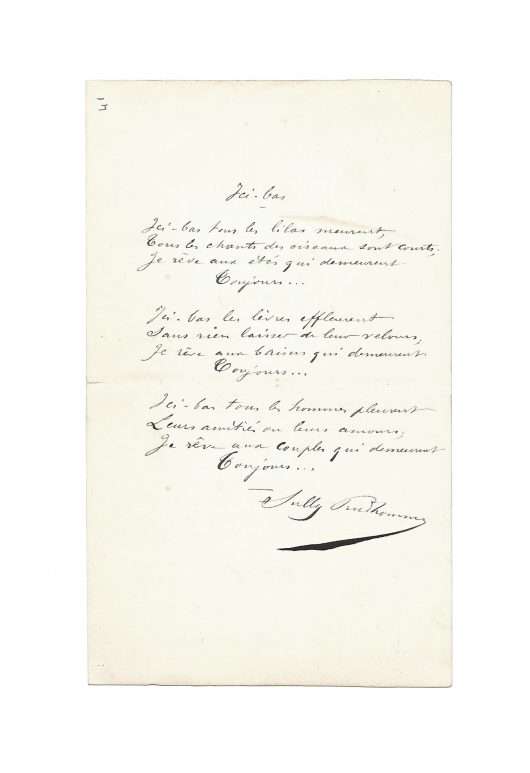 Ici-bas
Ici-bas tous les lilas meurent,
Tous les chants des oiseaux sont courts,
Je rêve aux étés qui demeurent
Toujours...
Ici-bas les lèvres effleurent
Sans rien laisser de leur velours,
Je rêve aux baisers qui demeurent
Toujours...
Ici-bas tous les hommes pleurent
Leurs amitiés ou leurs amours,
Je rêve aux couples qui demeurent
Toujours...
Sully Prudhomme